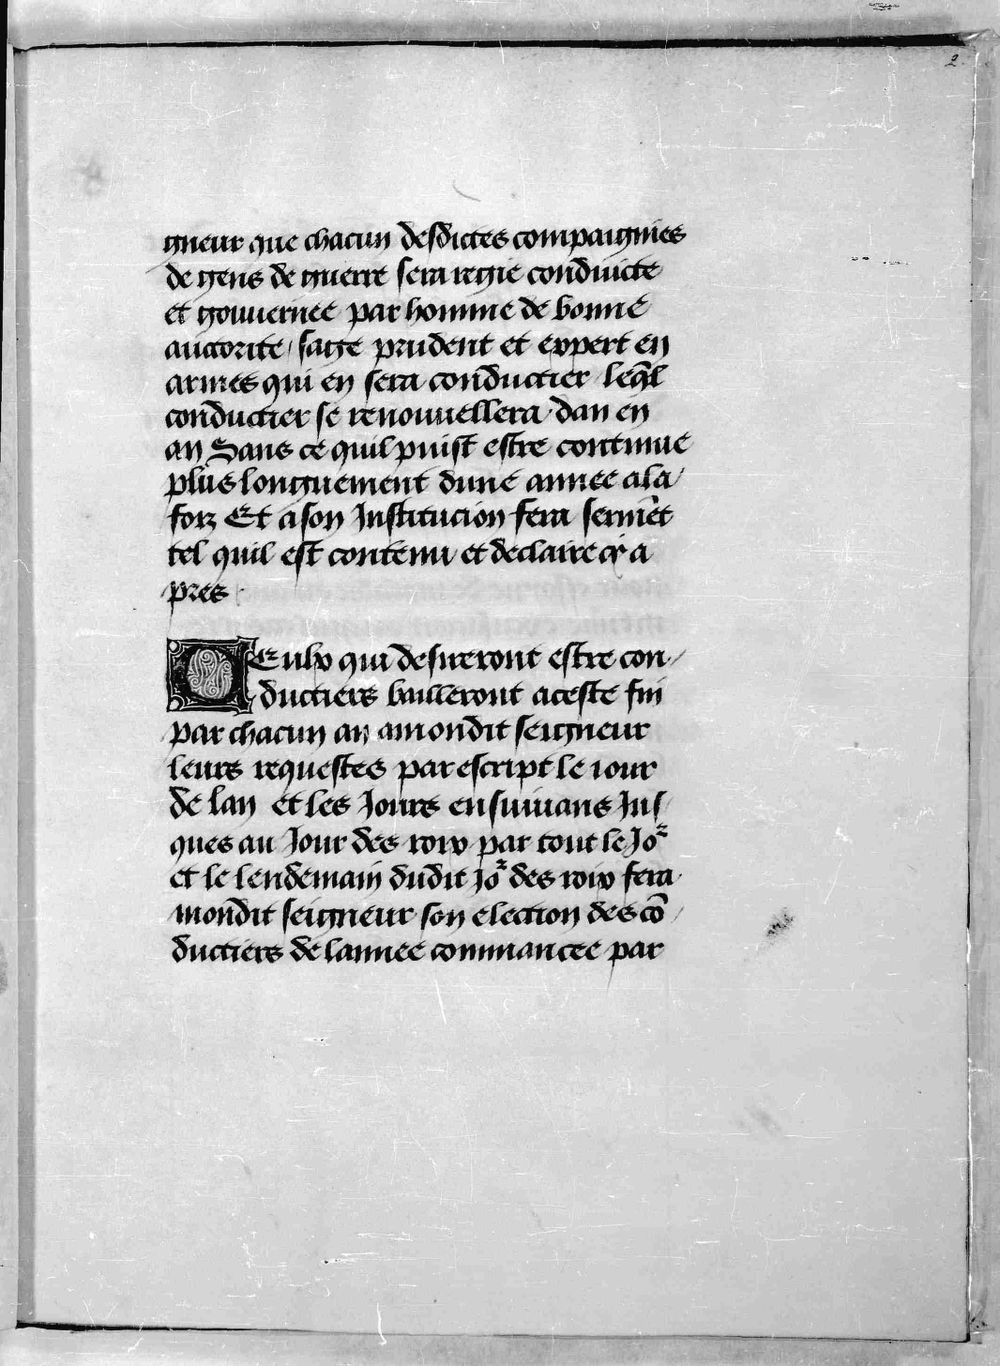 2
gneur que chacun desdictes compaignies
de gens de guerre sera regie conduicte
et gouuernee par homme de bonne
auctorite / saige prudent et expert en
armes qui en sera conductier / leq̄l
conductier se renouuellera dan en
an Sans ce quil puist estre continue
plus longuement dune annee a la
foiz Et a son Institucion fera serm̄et
tel quil est contenu et declaire cy a
pres
Ceulx qui desireront estre con-
ductiers bailleront a ceste fin
par chacun an a mondit seigneur
leurs requestes par escript le iour
de lan et les Jours ensuiuans Jus/
ques au Jour des roix par tout le Jor
et le lendemain dudit Jor des roix fera
mondit seigneur son election des cō/
ductiers de lannee commancee par